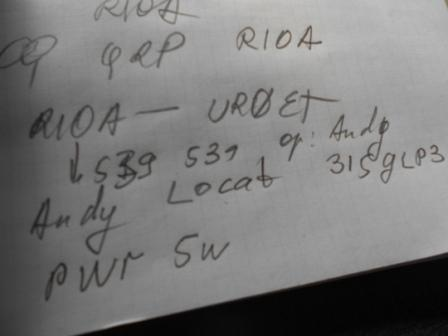 R10A
CQ QRP R10A
R10A — UR0ET
↓ 539 539 op: Andy
Andy Locat 315gLP3
PWr 5w